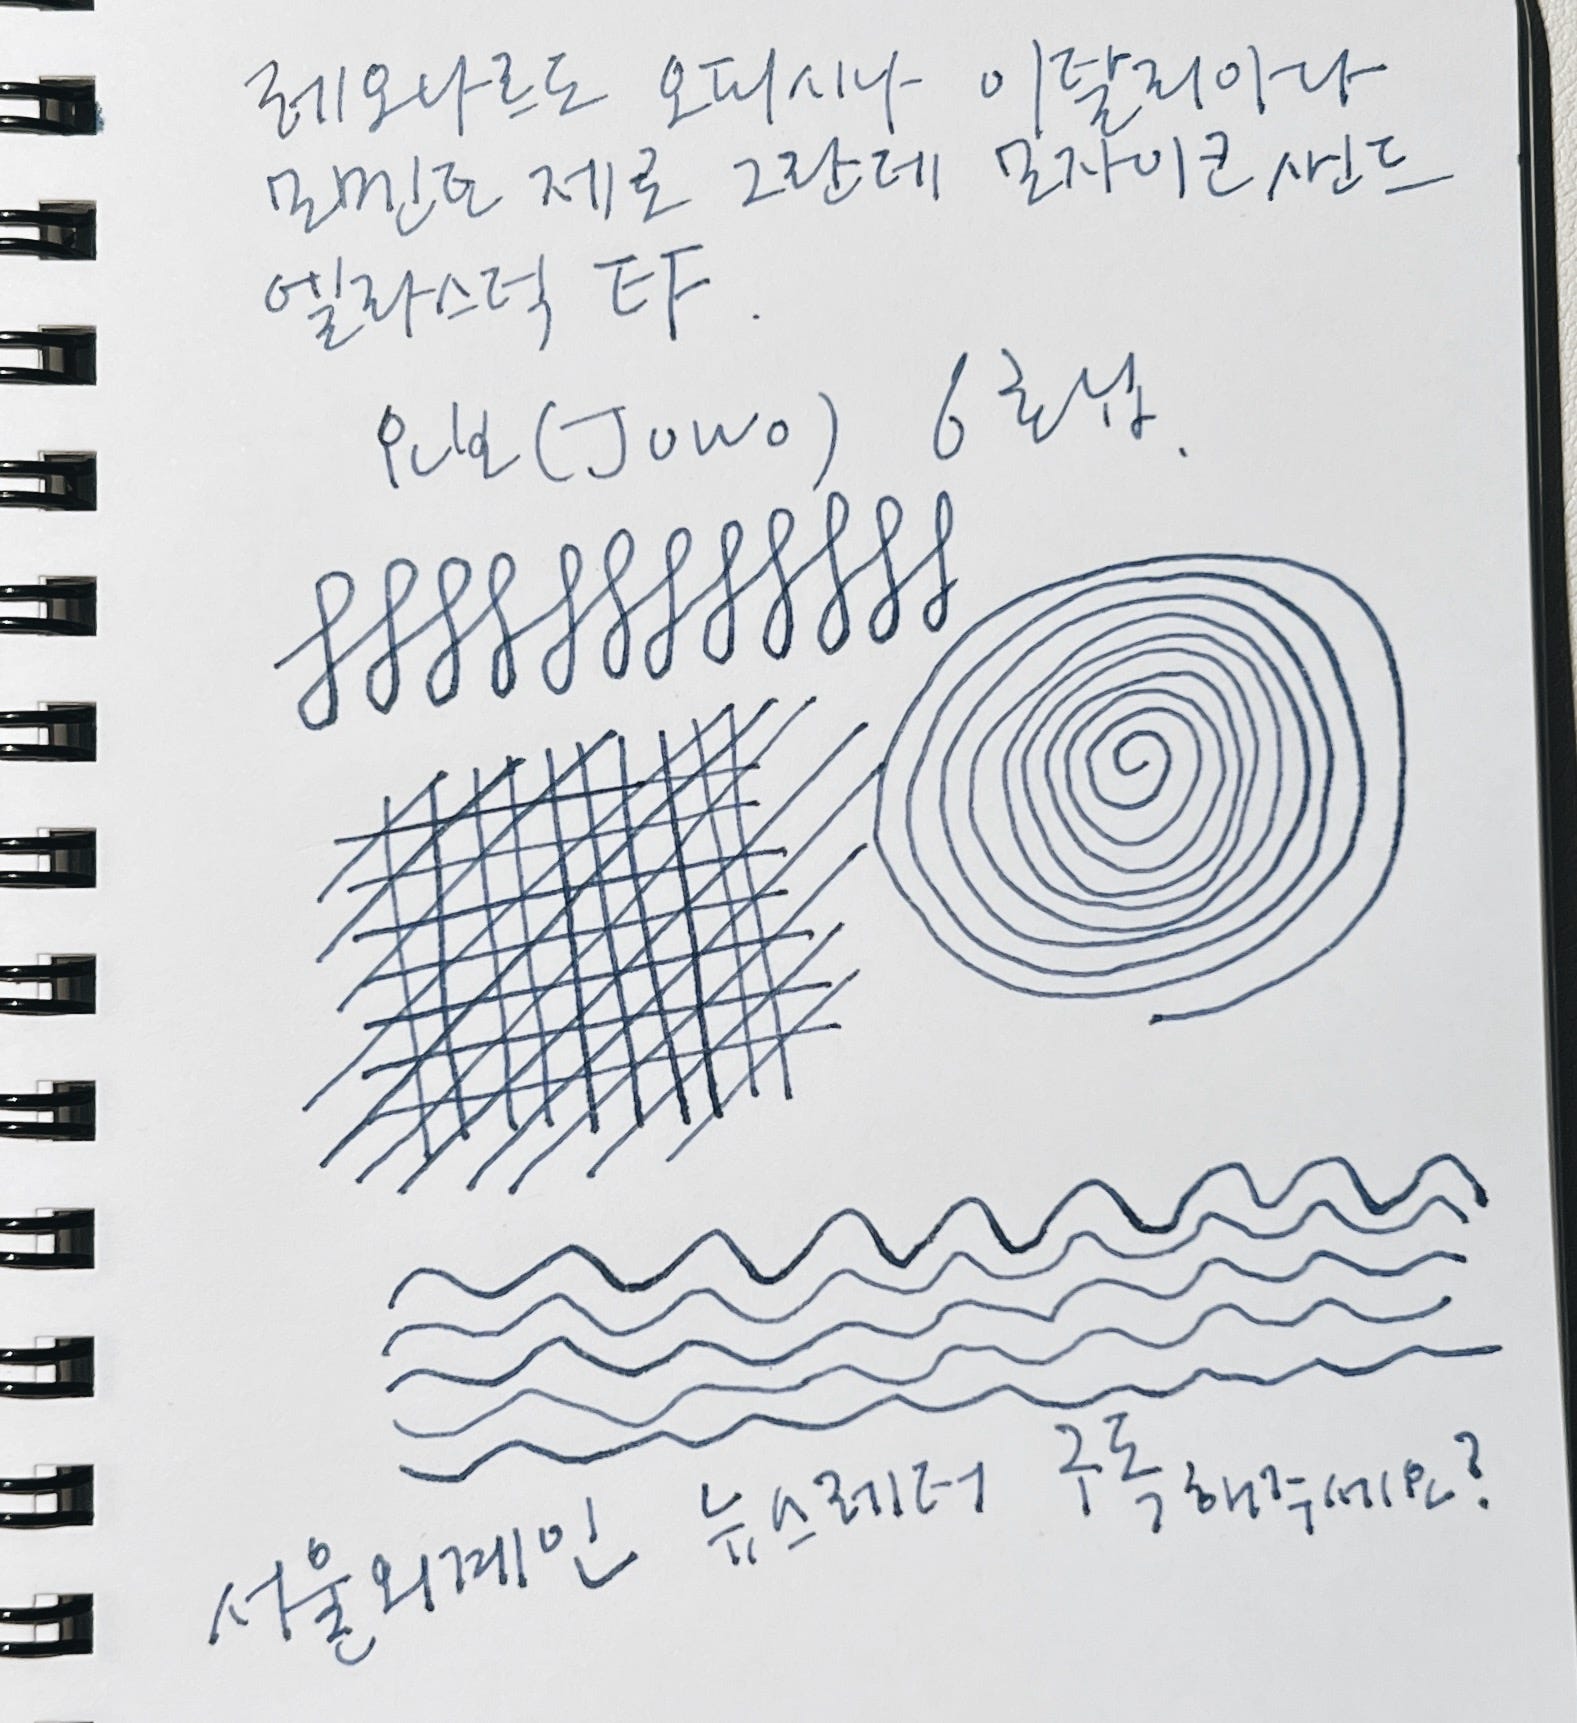 레오나르도 오피시나 이탈리아나
모멘토 제로 그란데 모자이코 샌드
엘라스틱 EF.
요보(Jowo) 6호닙.
서울외계인 뉴스레터 구독해주세요?